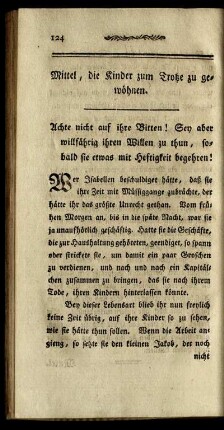 124
Mittel, die Kinder zum Trotze zu ge-
wöhnen.
Achte nicht auf ihre Bitten! Sey aber
willfährig ihren Willen zu thun, so-
bald sie etwas mit Heftigkeit begehren!
Wer Isabellen beschuldiget hätte, daß sie
ihre Zeit mit Müssiggange zubrächte, der
hätte ihr das größte Unrecht gethan. Vom frü-
hen Morgen an, bis in die späte Nacht, war sie
ja unaufhörlich geschäftig. Hatte sie die Geschäfte,
die zur Haushaltung gehöreten, geendiget, so spann
oder strickete sie, um damit ein paar Groschen
zu verdienen, und nach und nach ein Kapitäl-
chen zusammen zu bringen, das sie nach ihrem
Tode, ihren Kindern hinterlassen könnte.
Bey dieser Lebensart blieb ihr nun freylich
keine Zeit übrig, auf ihre Kinder so zu sehen,
wie sie hätte thun sollen. Wenn die Arbeit an-
gieng, so setzte sie den kleinen Jakob, der noch
nicht